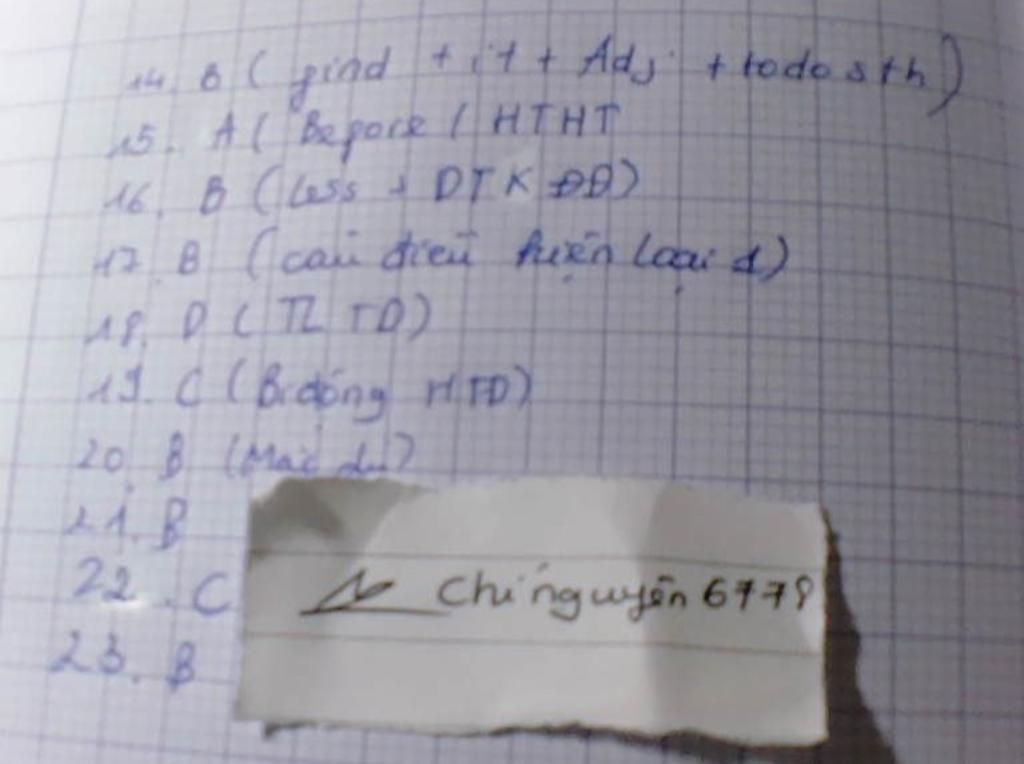 14. B ( find + it + Adj + to do sth )
15. A ( Before / HTHT
16. B ( Less + DTK ĐĐ)
17. B (câu điều kiện loại 1)
18. D ( TL TD)
19. C ( Bị động HTD)
20. B (Mặc dù)
21. B
22. C
23. B
Chínguyễn 6779